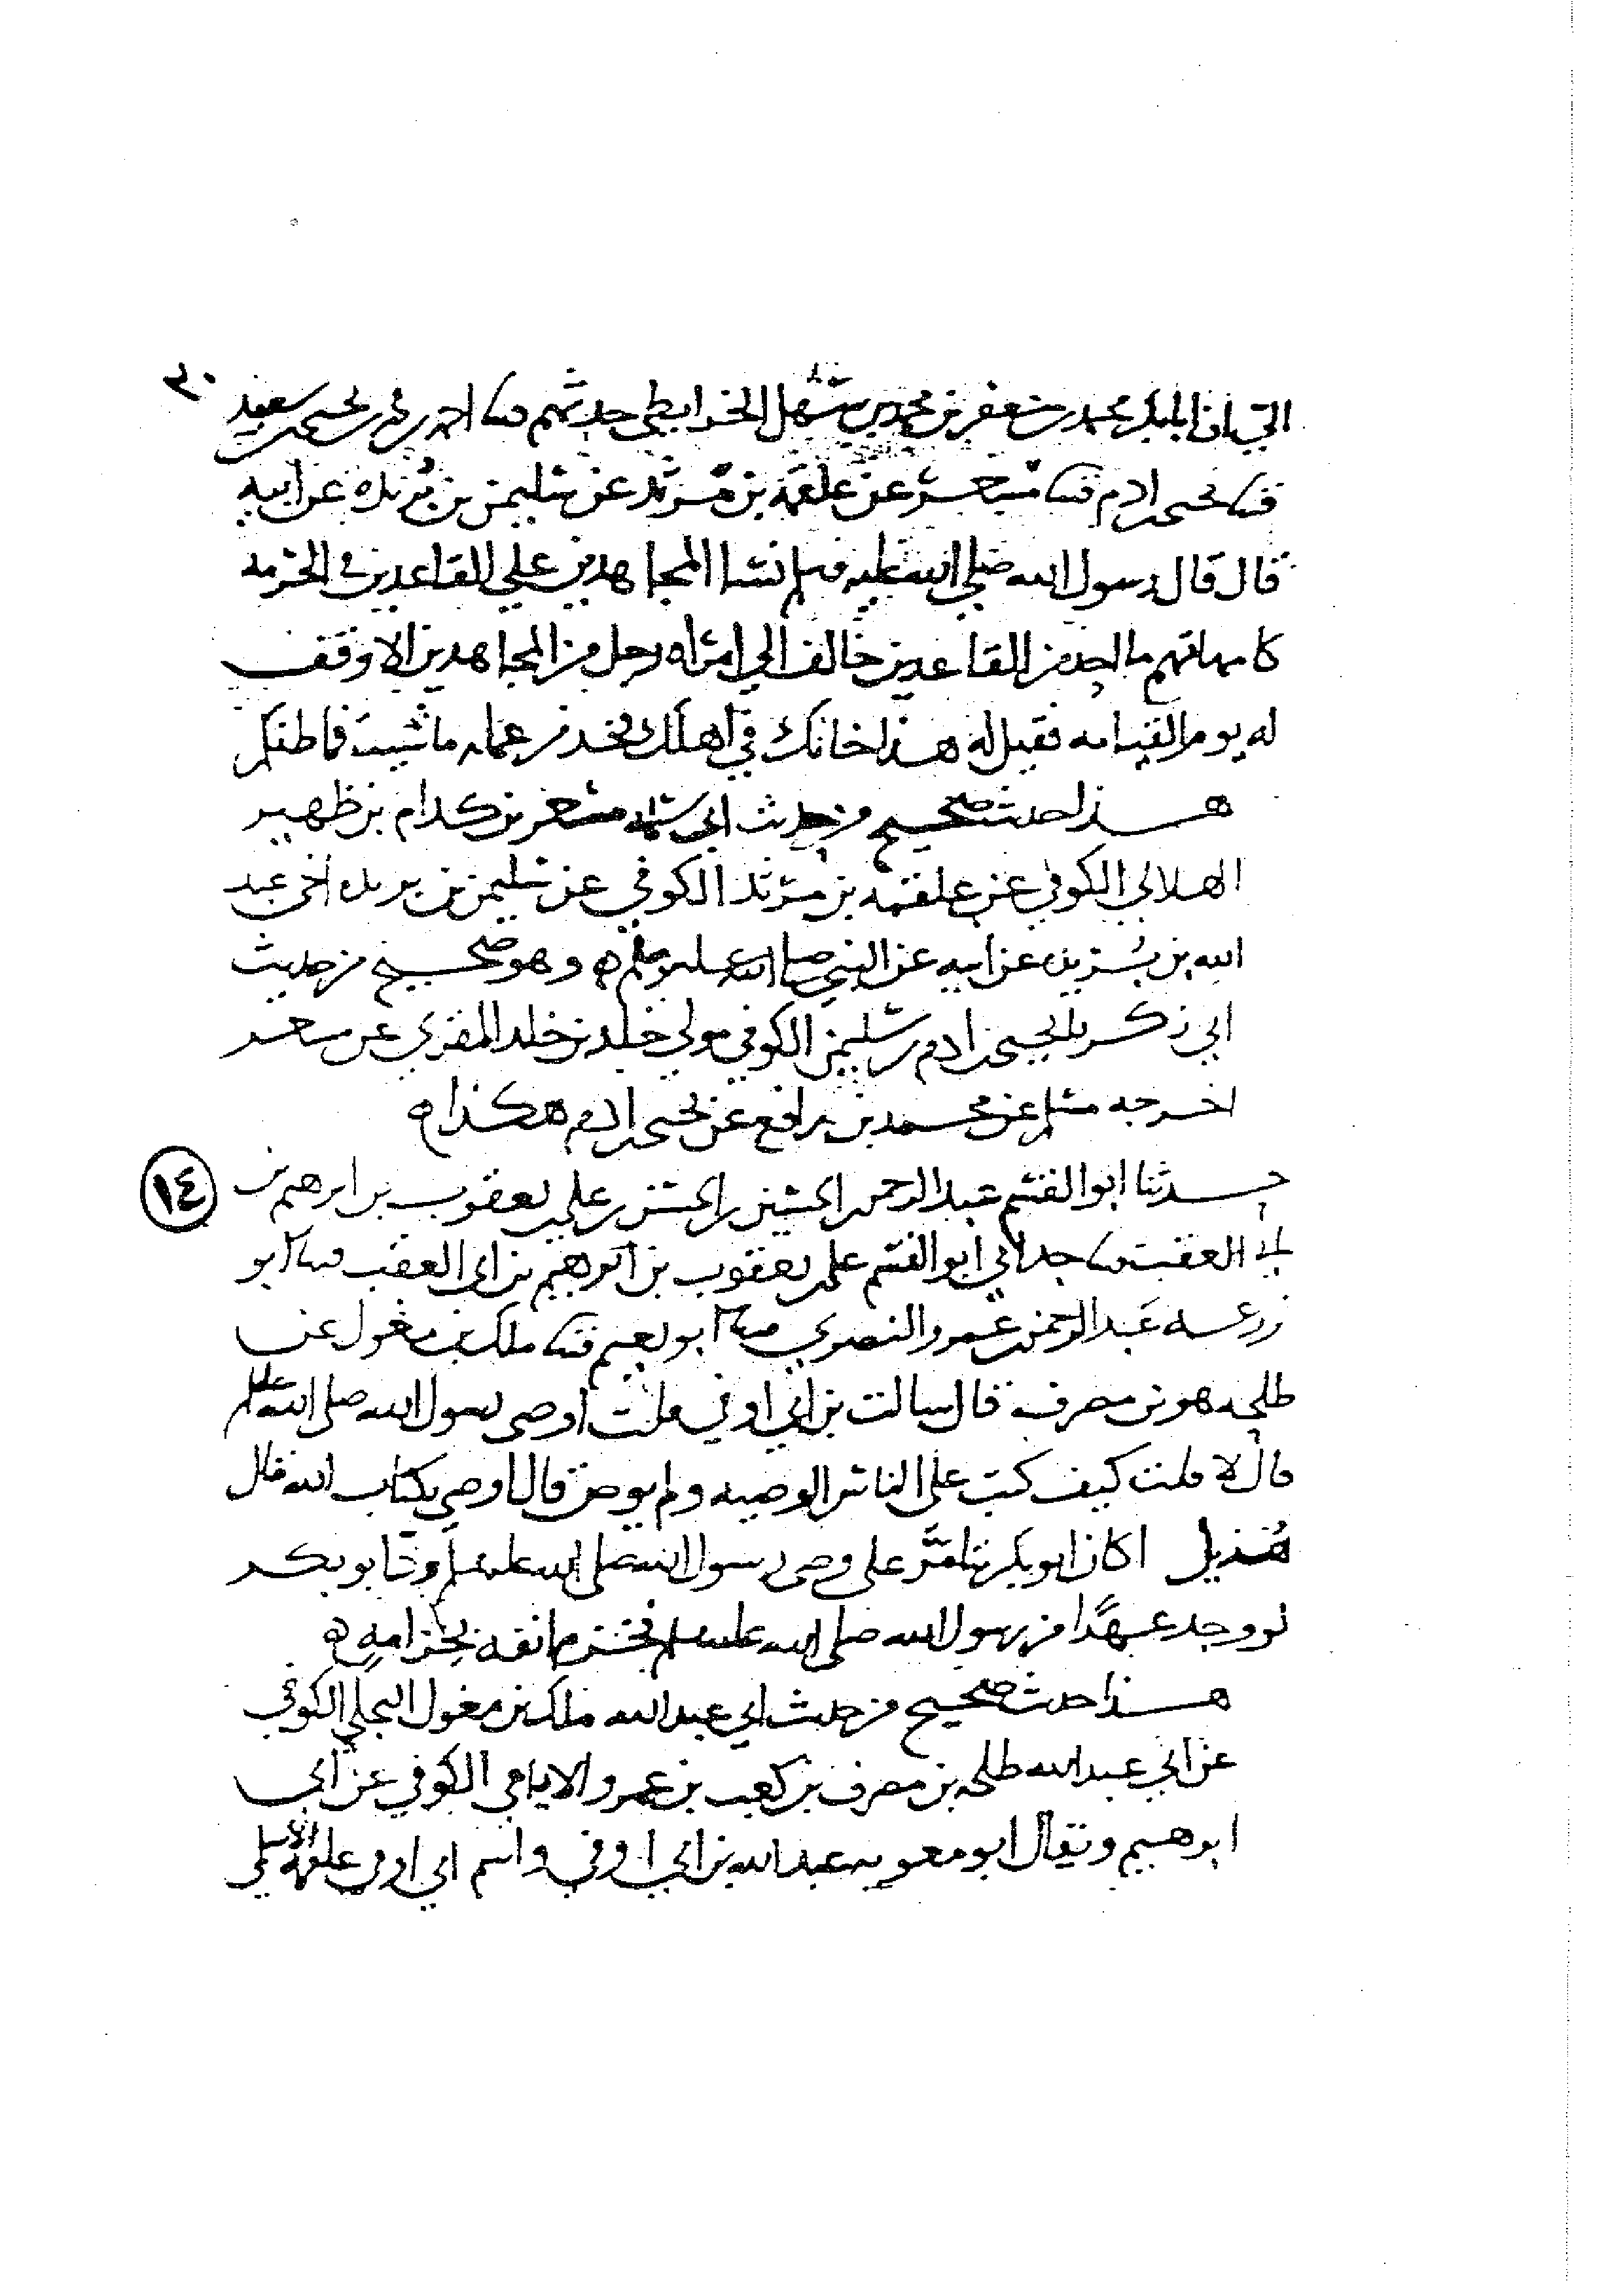 ان ابا بكر محمد بن جعفر بن محمد بن سهل الخرايطي حدثهم ثنا احمد بن يحيى سعيد
ثنا يحيى بن ادم ثنا مسعر عن علقمه بن مرثد عن سليمن بن بريده عن ابيه
قال قال رسول الله صلى الله عليه وسلم نسا المجاهدين على القاعدين في الحرمه
كامهاتهم ما احد من القاعدين خالف الي امراه رجل من المجاهدين الا وقف
له يوم القيامه فقيل له هذا خانك في اهلك فخذ من عمله ما شيت فما ظنكم
هذا حديث صحيح من حديث ابي سلمه مسعر بن كدام بن ظهير
الهلالي الكوفي عن علقمه بن مرثد الكوفي عن سليمن بن بريده اخي عبد
الله بن بريده عن ابيه عن النبي صلى الله عليه وسلم ه وهو صحيح من حديث
ابي زكريا يحيى بن ادم بن سليمن الكوفي مولي خلد بن خلد المقري عن مسعر
اخرجه مسلم عن محمد بن رافع عن يحيى بن ادم هكذا ه
١٤
حدثنا ابو القسم عبد الرحمن بن الحسين بن الحسن بن علي بن يعقوب بن ابرهيم بن
ابي العقب ثنا جد ابي ابو القسم علي بن يعقوب بن ابرهيم بن ابي العقب ثنا ابو
زرعه عبد الرحمن بن عمرو النصري ثنا ابو نعيم ثنا ملك بن مغول عن
طلحه هو بن مصرف قال سالت بن ابي اوفي قلت اوصى رسول الله صلى الله عليه وسلم
قال لا قلت كيف كتب على الناس الوصيه ولم يوص قال اوصى بكتاب الله قال
هذيل اكان ابو بكر يتامر على وصى رسول الله صلى الله عليه وسلم ود ابو بكر
لو وجد عهدا من رسول الله صلى الله عليه وسلم فخزم انفه بخزامه ه
هذا حديث صحيح من حديث ابي عبد الله ملك بن مغول البجلي الكوفي
عن ابي عبد الله طلحه بن مصرف بن كعب بن عمرو الايامي الكوفي عن ابي
ابرهيم ويقال ابو معويه عبد الله بن ابي اوفي واسم ابي اوفى علقمه الاسلمي